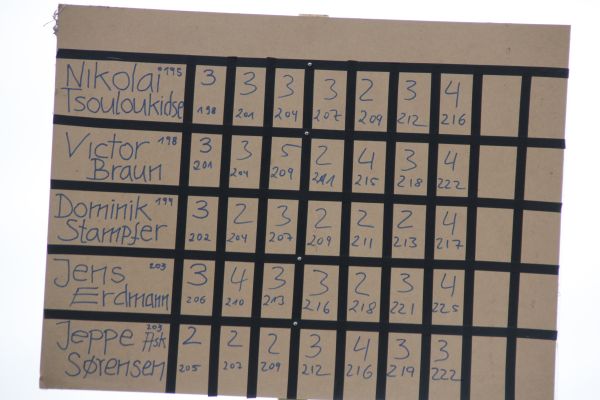 Nikolai 195 3 3 3 3 2 3 4
Tsouloukidse 198 201 204 207 209 212 216
Victor 198 3 3 5 2 4 3 4
Braun 201 204 209 211 215 218 222
Dominik 199 3 2 3 2 2 2 4
Stampfer 202 204 207 209 211 213 217
Jens 203 3 4 3 3 2 3 4
Erdmann 206 210 213 216 218 221 225
Jeppe Ask 203 2 2 2 3 4 3 3
Sørensen 205 207 209 212 216 219 222